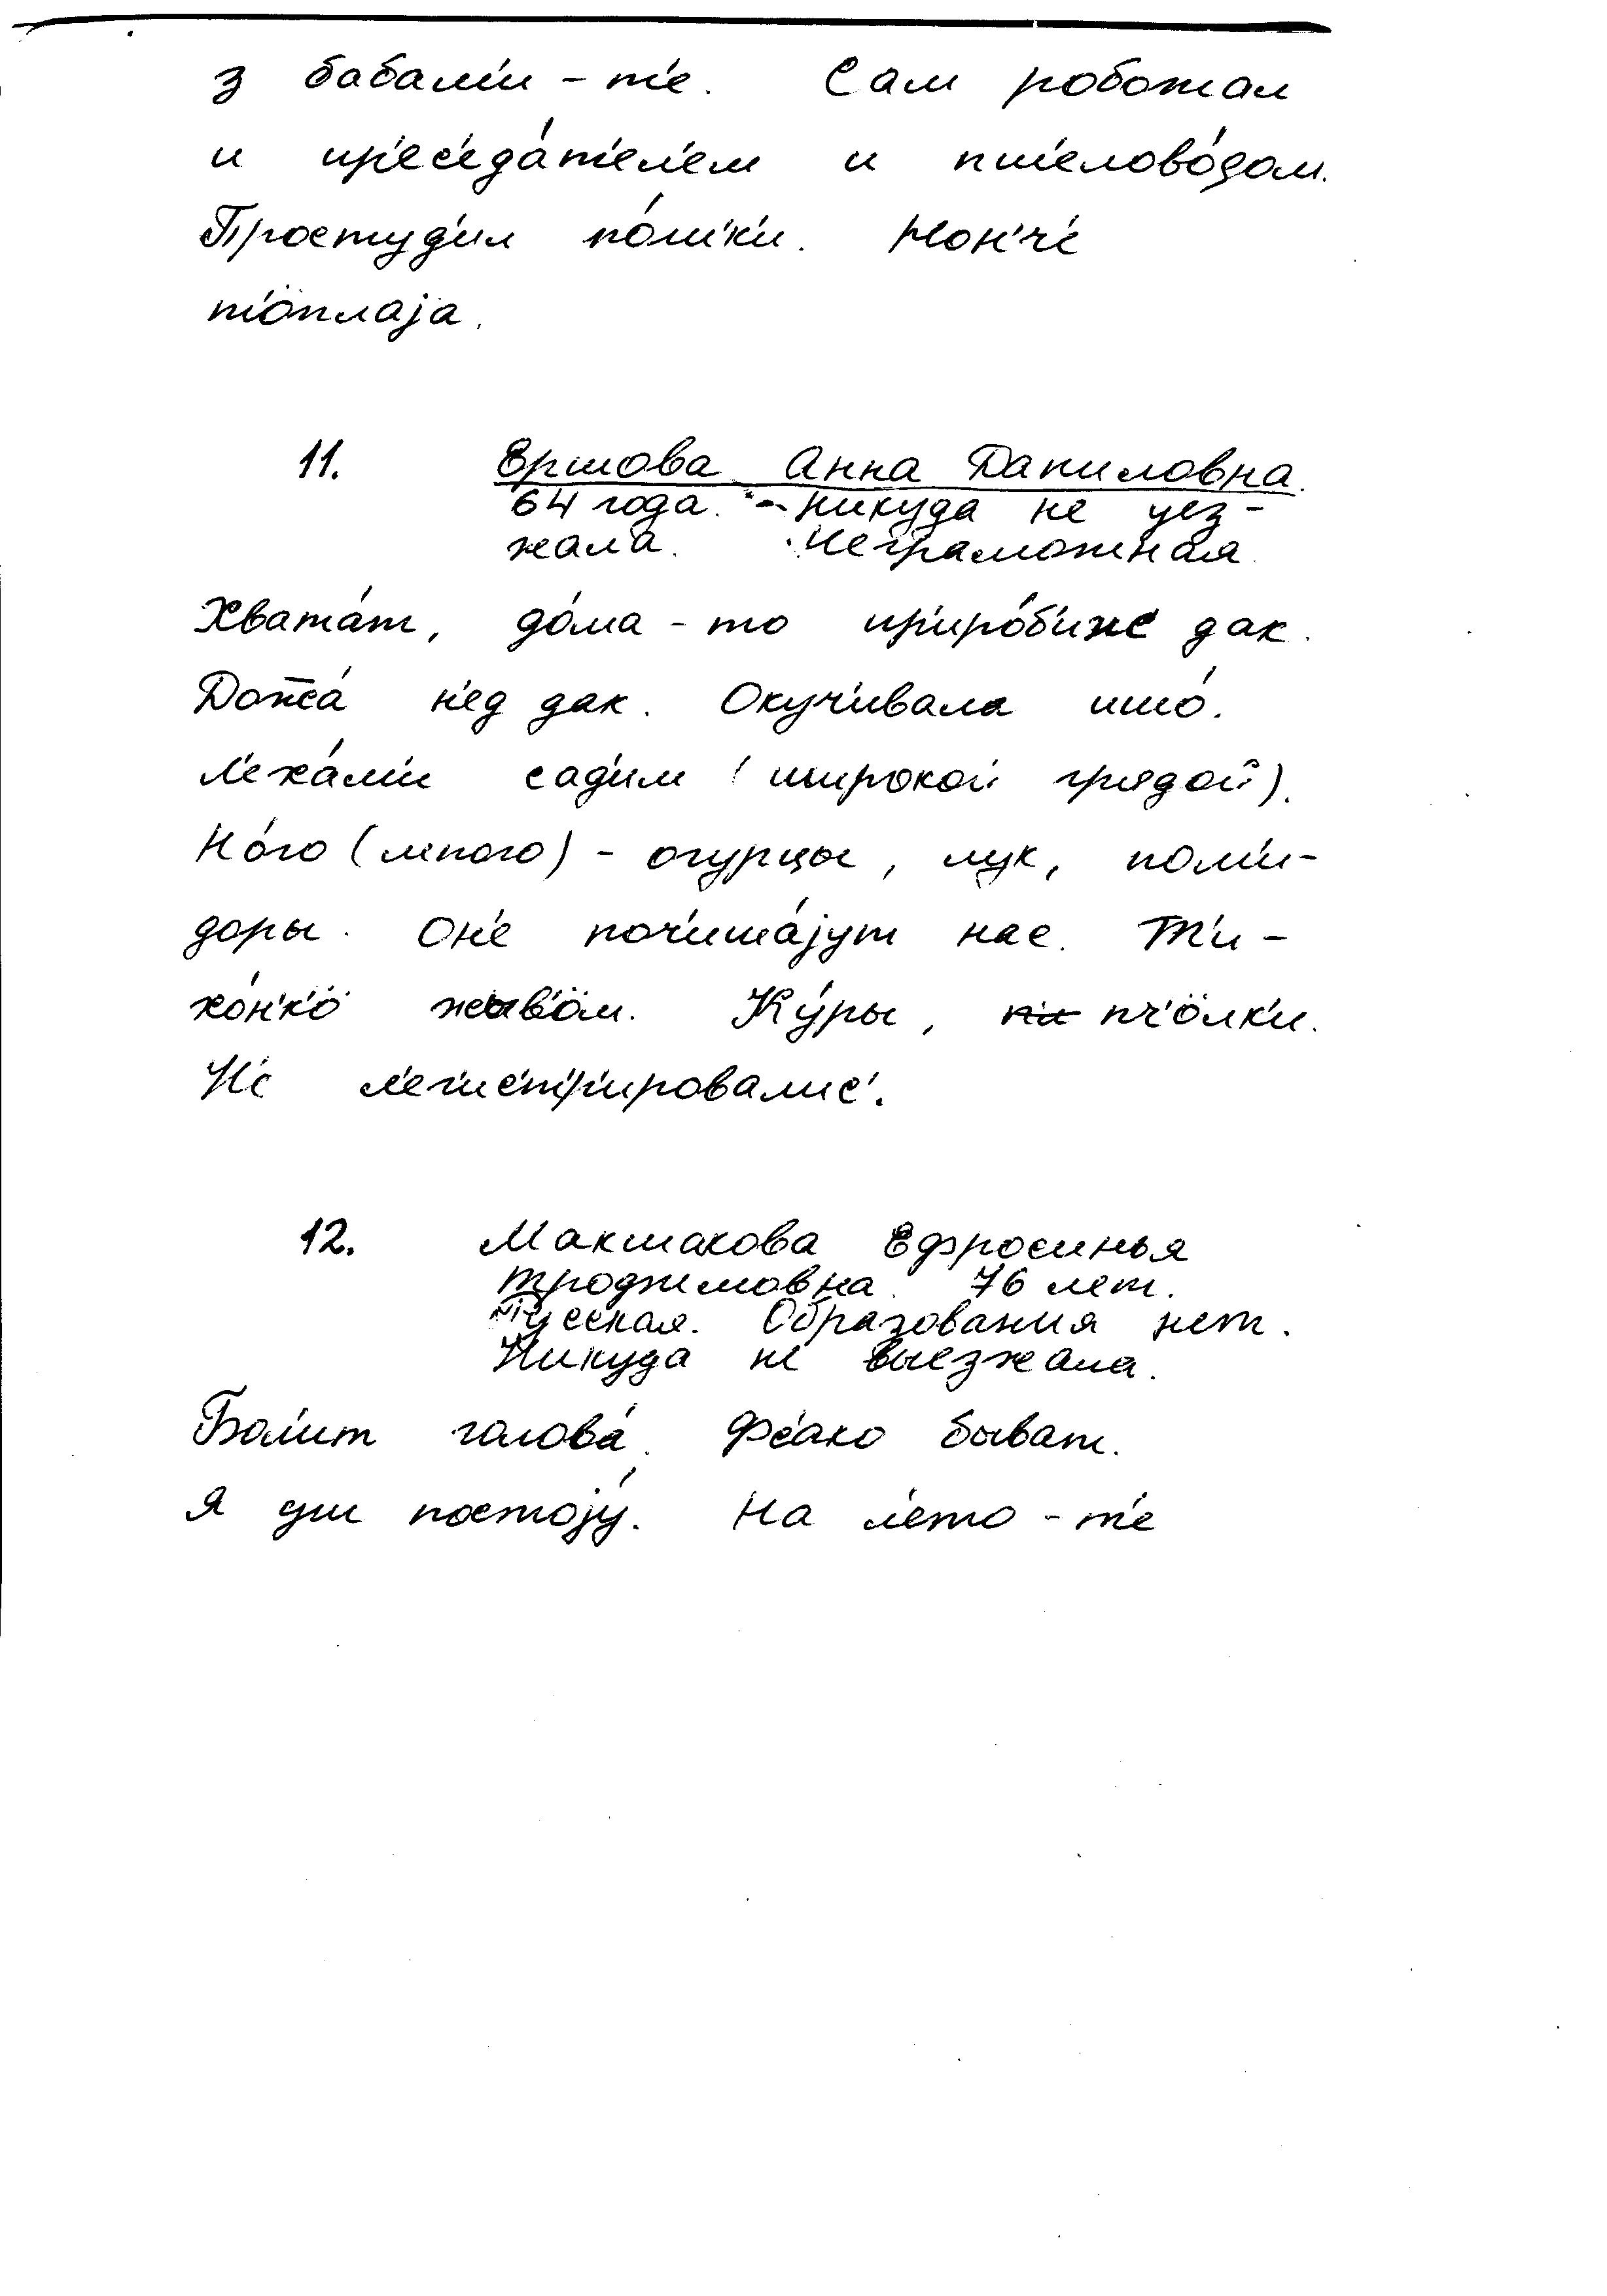 з бабам'и - т'е. Сам роботал
и пр'ес'еда́т'ел'ем и пш'елово́дом.
Простуд'ил по́ш'к'и. Нон'ч'е
т'о́плаjа.
11. Ершова Анна Даниловна.
64 года. - Никуда не уез-
жала. Неграмотная.
Хвата́т, до́ма - то пр'иро́б'иш дак.
н'ед дак. Окуч'ивала ишо́.
Леха́м'и сад'им (широкой грядой).
Но́го (много) - огурцы, лук, пом'и-
доры. Он'е поч'ита́jут нас. Т'и-
хо́н'к'ö жыв'öм. Ку́ры, пч'öлк'и.
Н'е л'ег'ис'тр'ировалис'.
12. Макшакова Ефросинья
Трофимовна. 76 лет.
Русская. Образования нет.
Никуда не выезжала.
Бол'ит голова́. Фс'ако быват.
Я уш постоjу́. На л'ето - т'е